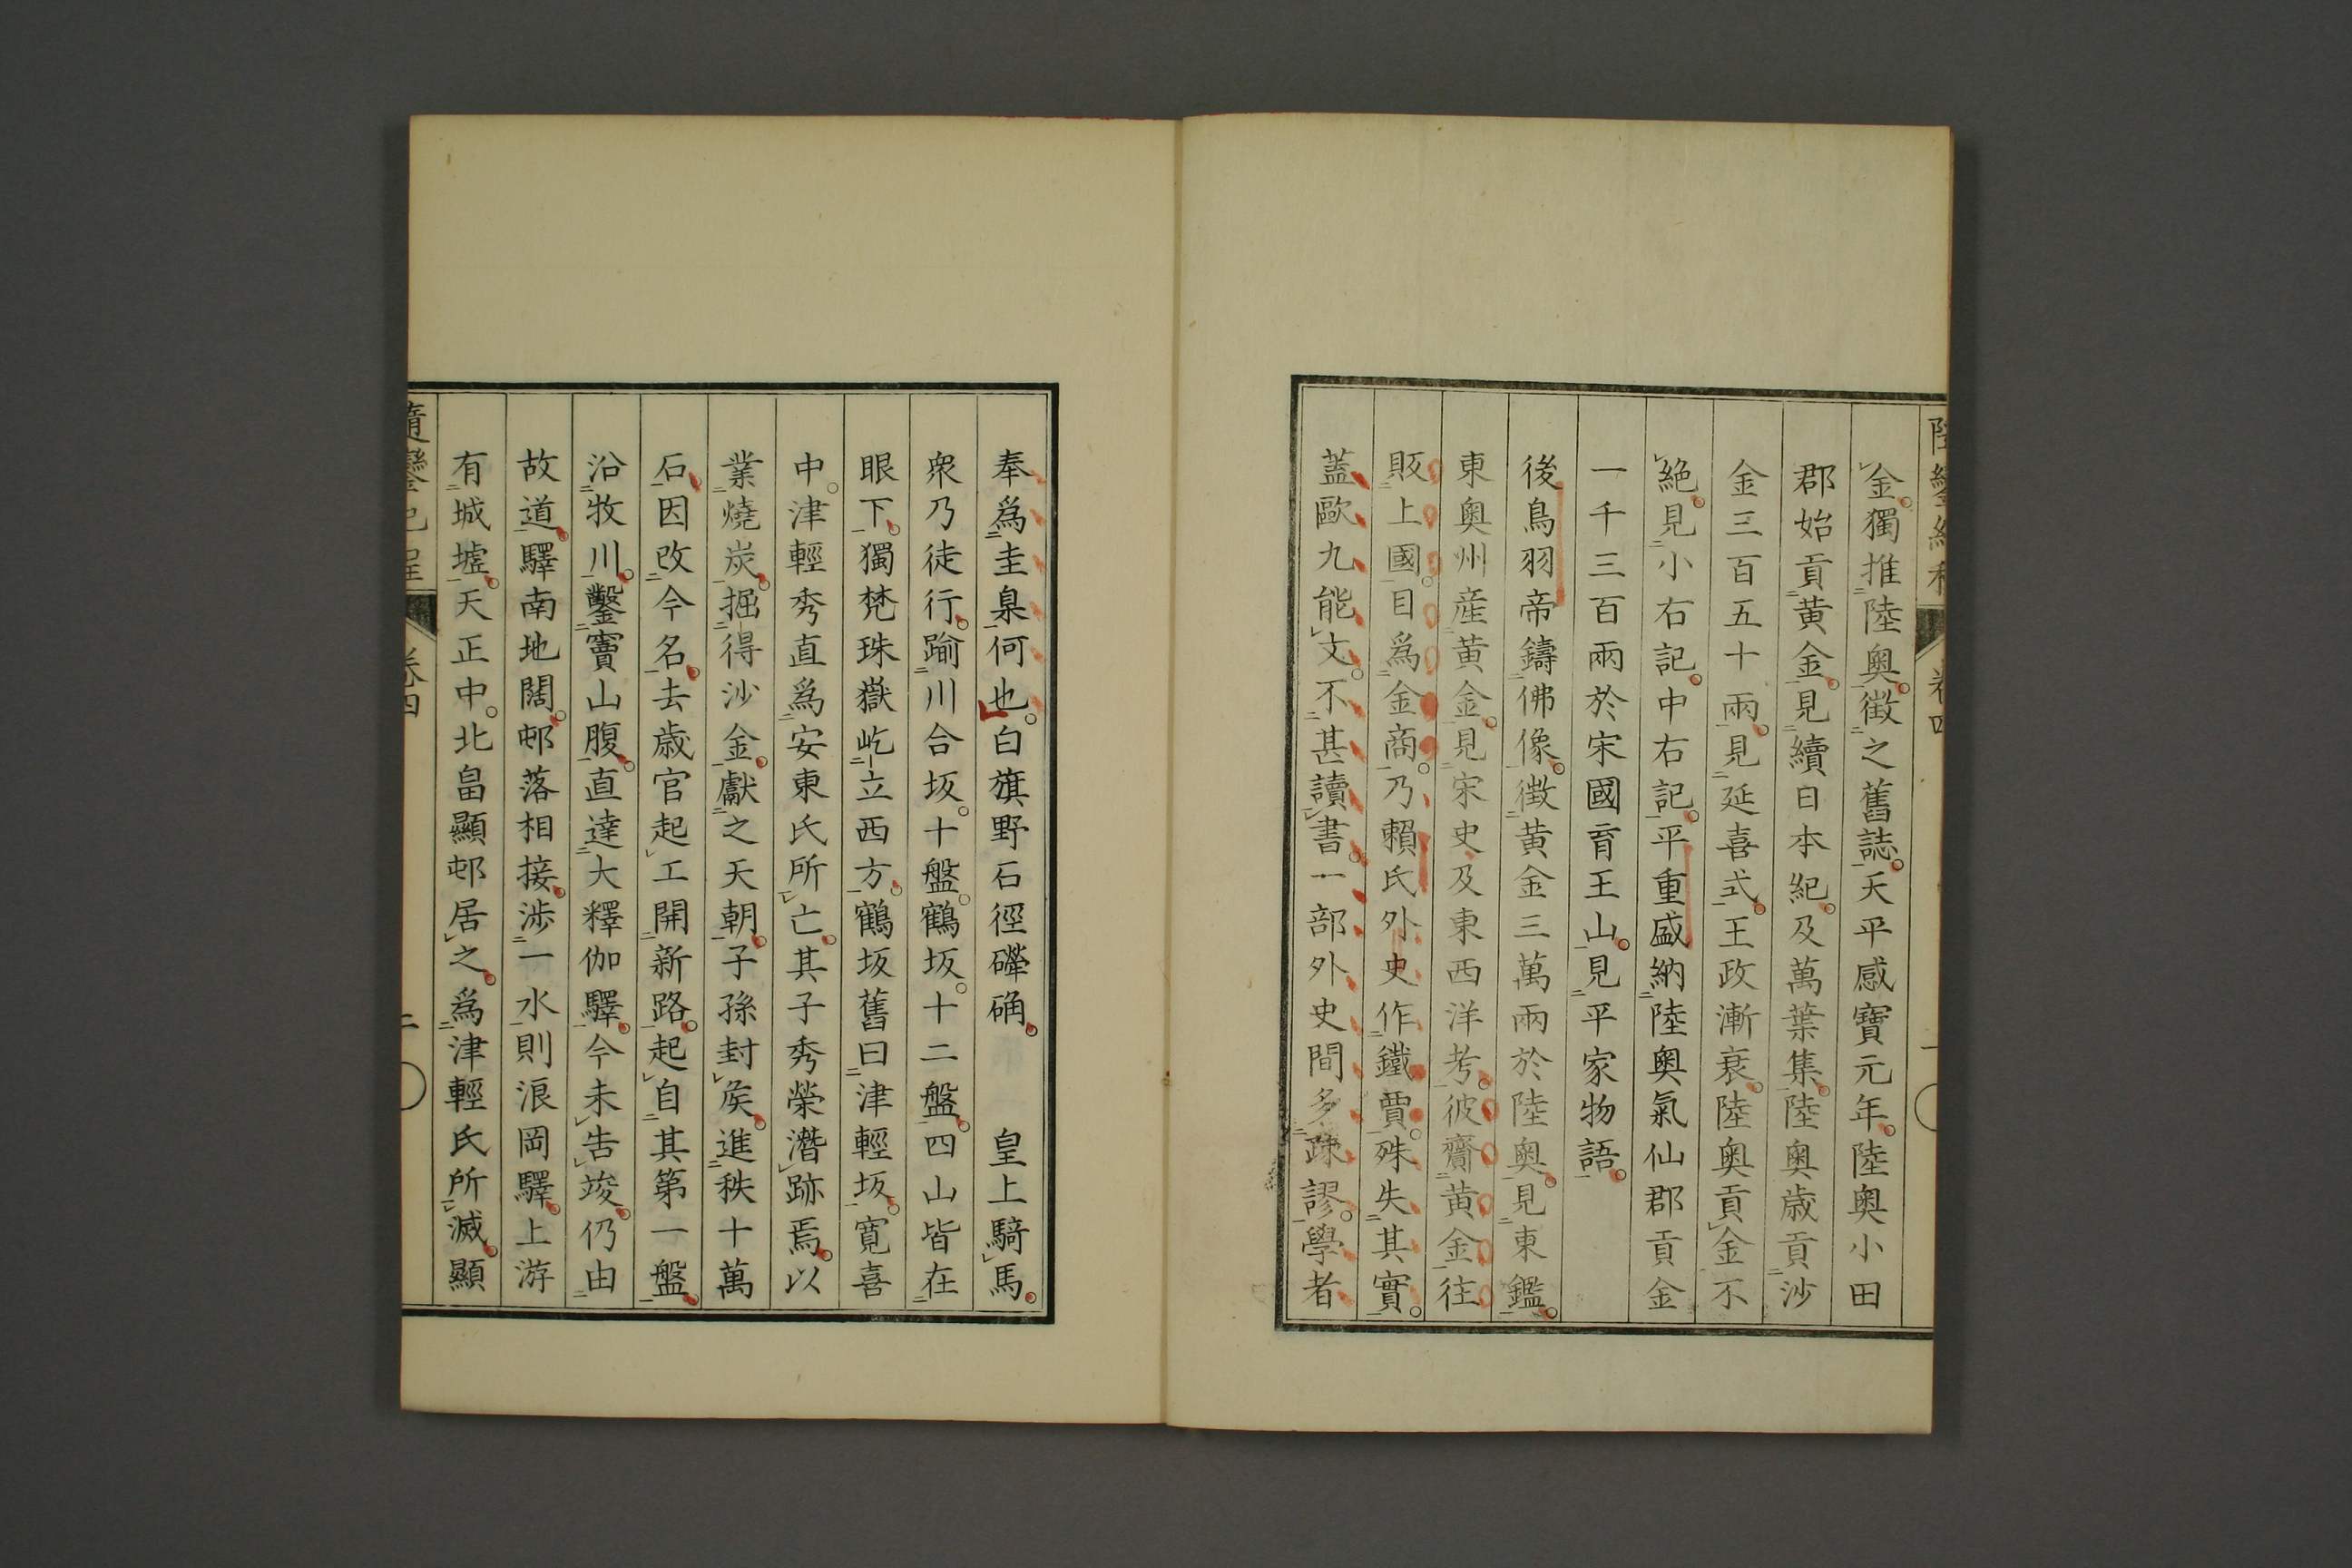 金。獨推陸奧。徵之舊誌。天平感寶元年。陸奧小田
郡始貢黃金。見續日本紀。及萬葉集。陸奧歲貢沙
金三百五十兩。見延喜式。王政漸衰。陸奧貢金不
絕。見小右記。中右記。平重盛納陸奧氣仙郡貢金
一千三百兩於宋國育王山。見平家物語。
後鳥羽帝鑄佛像。徵黃金三萬兩於陸奧。見東鑑。
東奧州產黃金。見宋史及東西洋考。彼齎黃金往
販上國。目爲金商。乃賴氏外史作鐵賈。殊失其實。
蓋歐九能文。不甚讀書。一部外史間多疎謬。學者
奉爲圭臬何也。白旗野石徑犖确。皇上騎馬。
衆乃徒行。踰川合坂。十盤。鶴坂。十二盤。四山皆在
眼下。獨梵珠嶽屹立西方。鶴坂舊曰津輕坂。寬喜
中。津輕秀直爲安東氏所亡。其子秀榮潛跡焉。以
業燒炭。掘得沙金。獻之天朝。子孫封矦。進秩十萬
石。因改今名。去歲官起工開新路。起自其第一盤。
沿牧川。鑿竇山腹。直達大釋伽驛。今未告竣。仍由
故道。驛南地闊。邨落相接。涉一水則浪岡驛。上游
有城墟。天正中。北畠顯邨居之。爲津輕氏所滅。顯
卷四